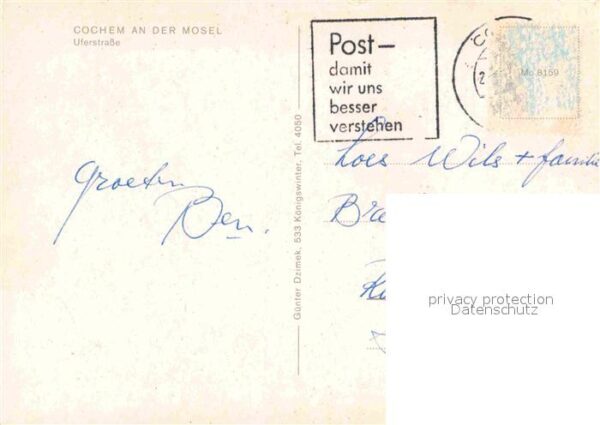 COCHEM AN DER MOSEL
Uferstraße
Post—
damit
wir uns
besser
verstehen
Mo 8159
groeten
Ben.
Günter Dzimek, 533 Königswinter, Tel. 4050
Loes Wils + familie
privacy protection
Datenschutz